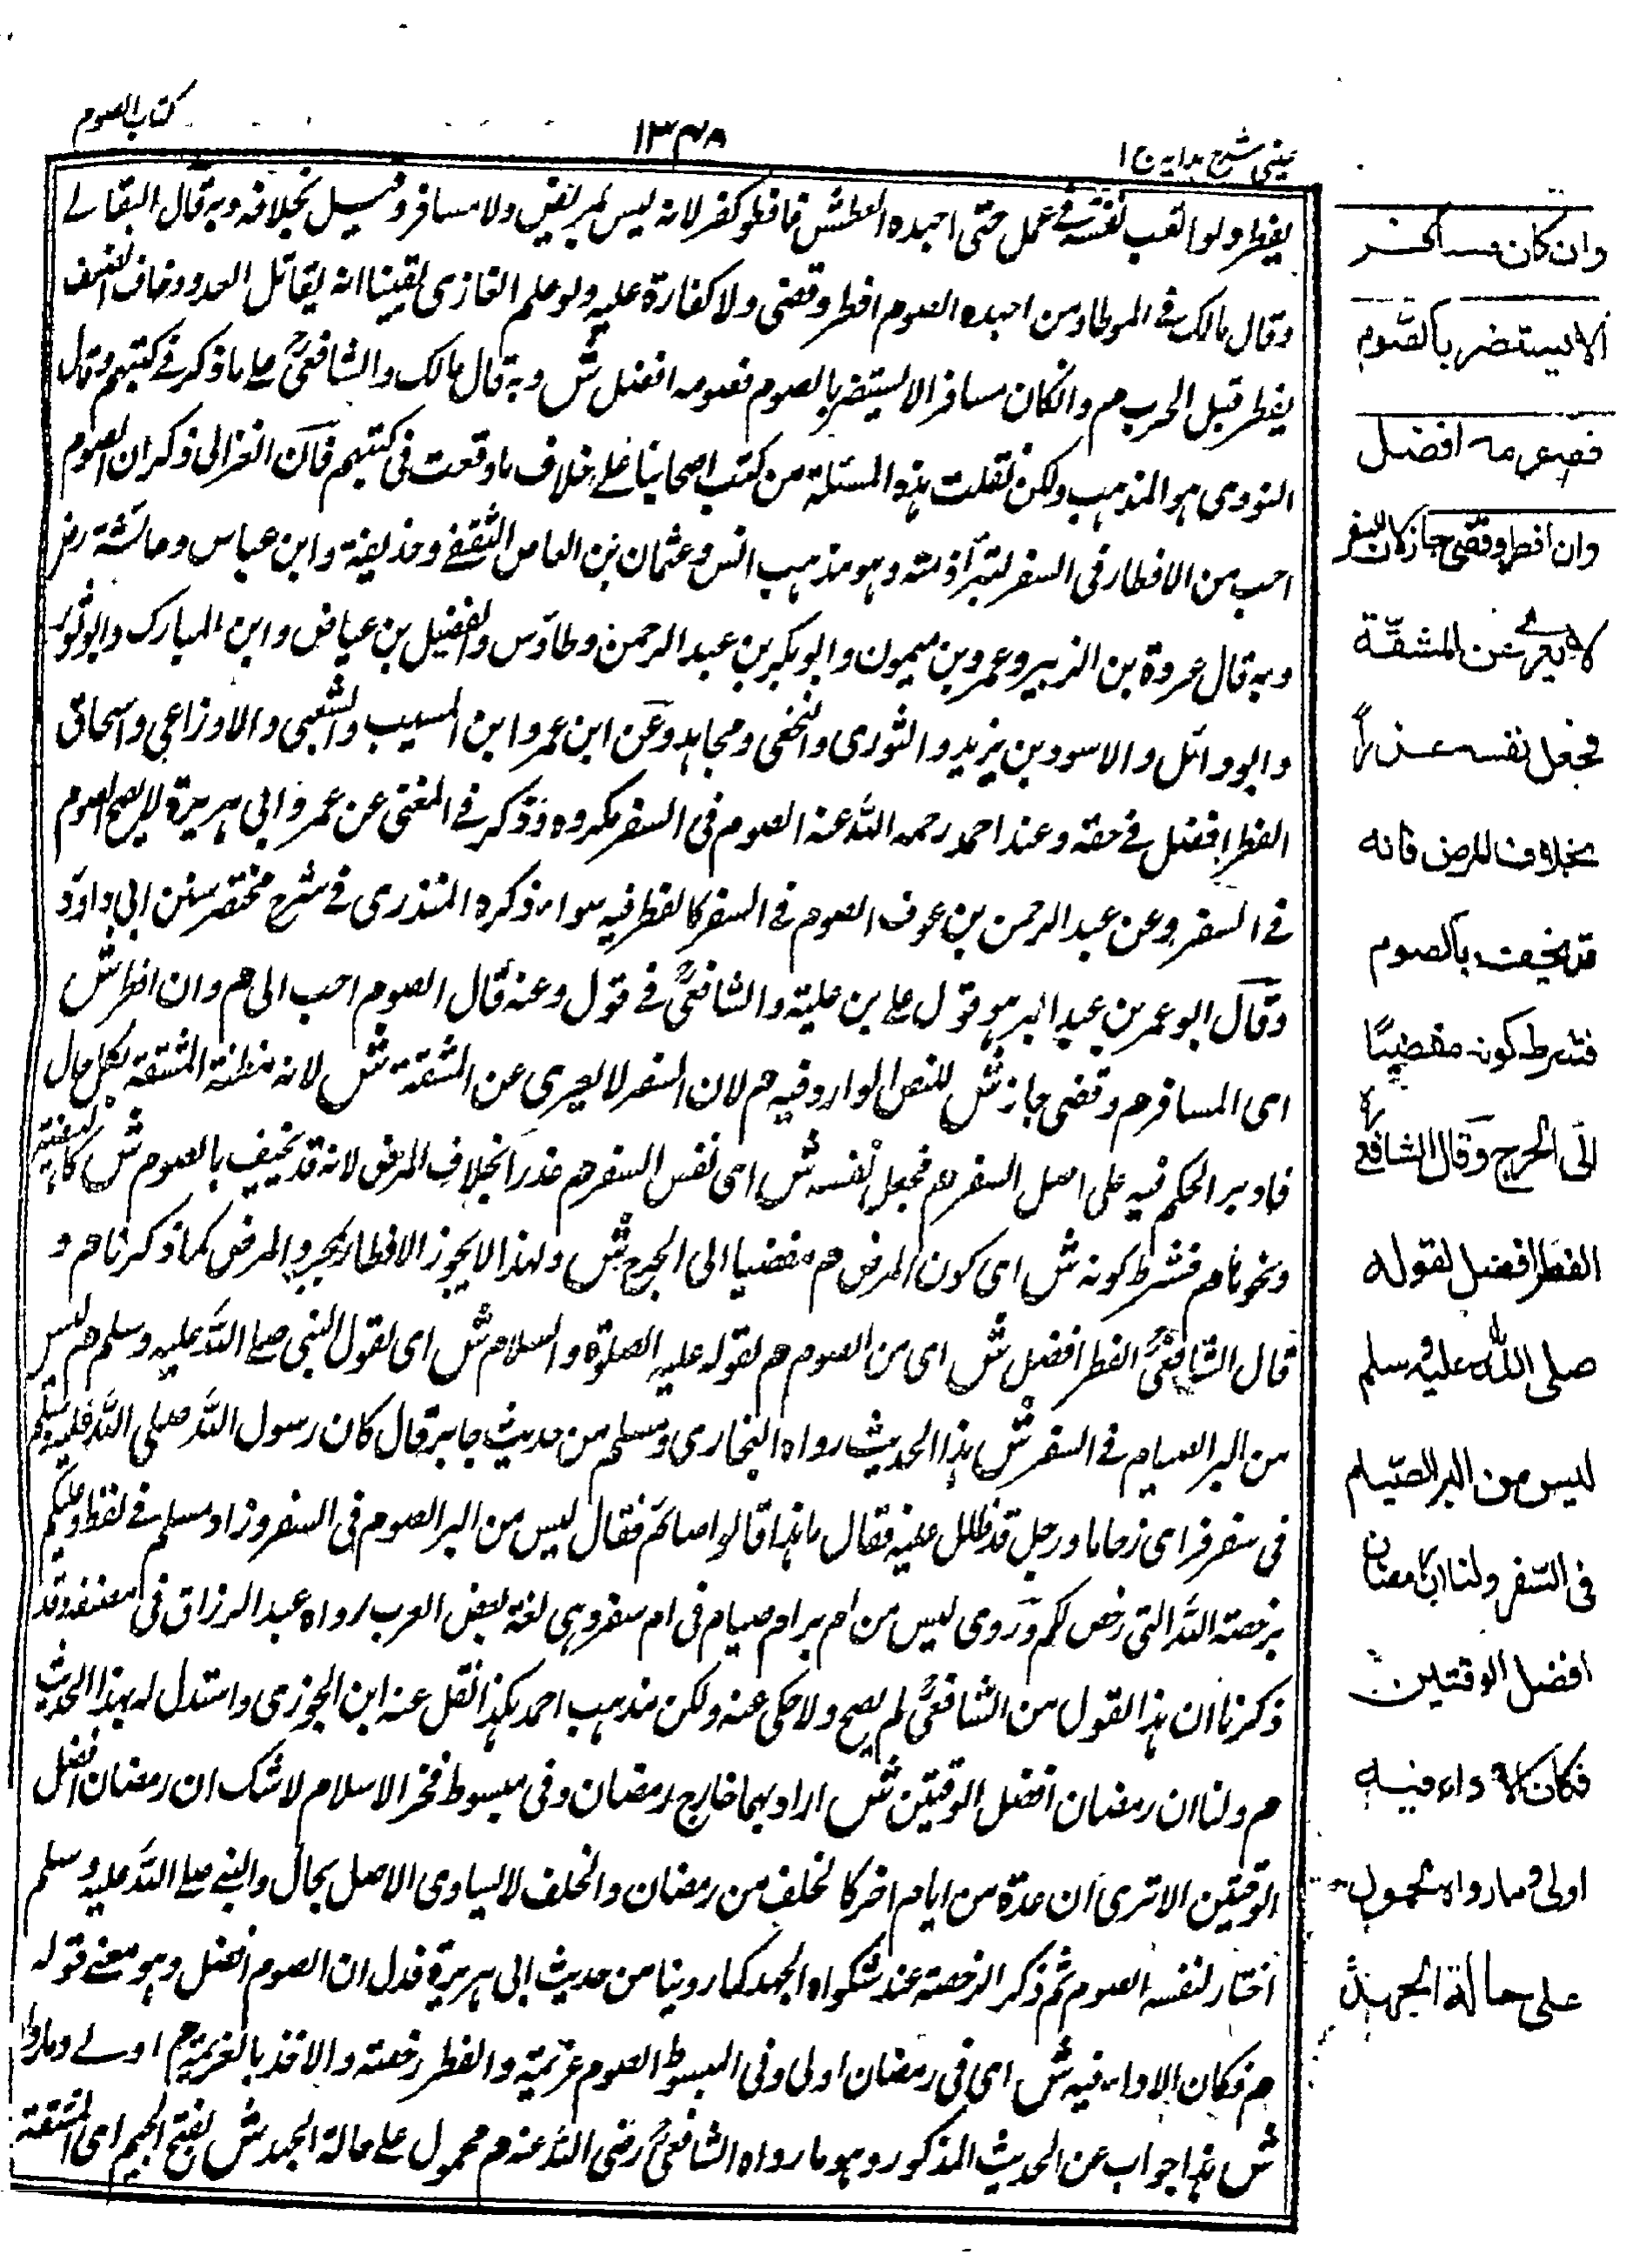 عینی شرح ہدایہ ج ۱
۱۳۴۸
کتاب الصوم
یفطر ولو اتعب نفسہ فی عمل حتی اجہدہ العطش فافطر کفر لانہ لیس بمریض ولا مسافر وقیل بخلافہ وبہ قال البقالے
وقال مالک فے الموطا ومن اجہدہ الصوم افطر وقضی ولا کفارۃ علیہ ولو علم الغازی یقینا انہ یقاتل العدو وخاف الضعف
یفطر قبل الحرب م وانکان مسافرا لا یستضر بالصوم فصومہ افضل ش وبہ قال مالک والشافعیؒ علے ما ذکر فے کتبہم وقال
النووی ہو المذہب ولکن نقلت ہذہ المسئلۃ من کتب اصحابنا علے خلاف ما وقعت فی کتبہم فان الغزالی ذکر ان الصوم
احب من الافطار فی السفر لتبرأ ذمتہ وہو مذہب انس وعثمان بن العاص الثقفے وحذیفۃ وابن عباس وعائشۃ رض
وبہ قال عروۃ بن الزبیر وعمرو بن میمون وابو بکر بن عبد الرحمن وطاؤس والفضیل بن عیاض وابن المبارک وابو ثور
وابو وائل والاسود بن یزید والثوری والنخعی ومجاہد وعن ابن عمر وابن المسیب والشعبی والاوزاعی واسحاق
الفطر افضل فے حقہ وعند احمد رحمہ اللہ عنہ الصوم فی السفر مکروہ وذکر فے المغنی عن عمر وابی ہریرۃ لا یصح الصوم
فے السفر وعن عبد الرحمن بن عوف الصوم فے السفر کالفطر فیہ سواء ذکرہ المنذری فے شرح مختصر سنن ابی داؤد
وقال ابو عمر بن عبد البر ہو قول علے بن علیۃ والشافعیؒ فے قول وعنہ قال الصوم احب الی م وان افطر ش
ای المسافر م وقضی جاز ش للنص الوارد فیہ م لان السفر لا یعری عن المشقۃ ش لانہ مظنۃ المشقۃ بکل حال
فادیر الحکم فیہ علی اصل السفر م فجعل نفسہ ش ای نفس السفر م عذرا بخلاف المرض لانہ قد یخفف بالصوم ش
ونحوہا م فشرط کونہ ش ای کون المرض م مفضیا الی الحرج ش ولہذا لا یجوز الافطار بمجرد المرض کما ذکرنا م و
قال الشافعیؒ الفطر افضل ش ای من الصوم م لقولہ علیہ الصلوۃ والسلام ش ای لقول النبی صلے اللہ علیہ وسلم م لیس
من البر الصیام فے السفر ش ہذا الحدیث رواہ البخاری ومسلم من حدیث جابر قال کان رسول اللہ صلی اللہ علیہ وسلم
فی سفر فرای زحاما ورجل قد ظلل علیہ فقال ما ہذا قالوا صائم فقال لیس من البر الصوم فی السفر وزاد مسلم فے لفظ وعلیکم
برخصۃ اللہ التی رخص لکم وروی لیس من ام بر ام صیام فی ام سفر وہی لغۃ بعض العرب رواہ عبد الرزاق فی مصنفہ وقد
ذکرنا ان ہذا القول من الشافعیؒ لم یصح ولا حکی عنہ ولکن مذہب احمد ہکذا نقل عنہ ابن الجوزی واستدل لہ بہذا الحدیث
م ولنا ان رمضان افضل الوقتین ش اراد بہما خارج رمضان وفی مبسوط فخر الاسلام لا شک ان رمضان افضل
الوقتین الا تری ان عدۃ من ایام اخر کالخلف من رمضان والخلف لا یساوی الاصل بحال والنبے صلے اللہ علیہ وسلم
اختار لنفسہ الصوم ثم ذکر الرخصۃ عند شکواہ الجہد کما روینا من حدیث ابی ہریرۃ فدل ان الصوم افضل وہو معنے قولہ
م فکان الاداء فیہ ش ای فی رمضان اولی وفی المبسوط الصوم عزیمۃ والفطر رخصتہ والاخذ بالعزیمۃ م اولے وما رواہ
ش ہذا جواب عن الحدیث المذکور وہو ما رواہ الشافعیؒ رضی اللہ عنہ م محمول علے حالۃ الجہد ش بفتح الجیم ای المشقۃ
وان کان مسافرا
لا یستضر بالصوم
فصومہ افضل
وان افطر وقضی جاز لان السفر
لا یعری عن المشقۃ
فجعل نفسہ عذرا
بخلاف المرض فانہ
قد یخفف بالصوم
فشرط کونہ مفضیا
الی الحرج وقال الشافعی
الفطر افضل لقولہ
صلی اللہ علیہ وسلم
لیس من البر الصیام
فی السفر ولنا ان رمضان
افضل الوقتین
فکان الاداء فیہ
اولی وما رواہ محمول
علی حالۃ الجہد